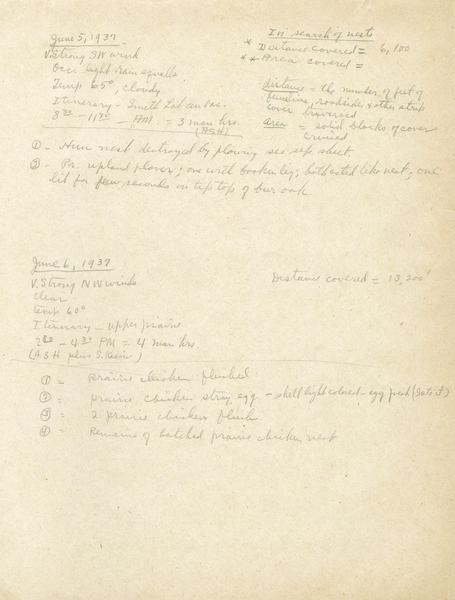 June 5, 1937
V. Strong SW wind
Occ. light rain squalls
Temp 65°, cloudy
Itinerary - Smith Lob
8:30 - 11:30 - AM = 3 man hrs.
(ASH)
In search of nests
* Distance covered = 6,100
** Area covered =
distance = the number of feet of
fenceline, roadside & other strip
cover traversed
area = solid blocks of cover
cruised
① - Hun nest destroyed by plowing see sep. sheet
② - Pr. upland plover; one with broken leg; both acted like nest; one
lit for few seconds on tip top of bur oak
June 6, 1937
V. Strong NW winds
clear
temp 60°
Itinerary - upper prairie
2:30 - 4:30 PM = 4 man hrs.
(ASH plus S.)
Distance covered = 13,200'
① = prairie chicken flushed
② = prairie chicken stray egg - shell light colored - egg fresh (
③ = 2 prairie chickens flush
④ = Remains of hatched prairie chicken nest